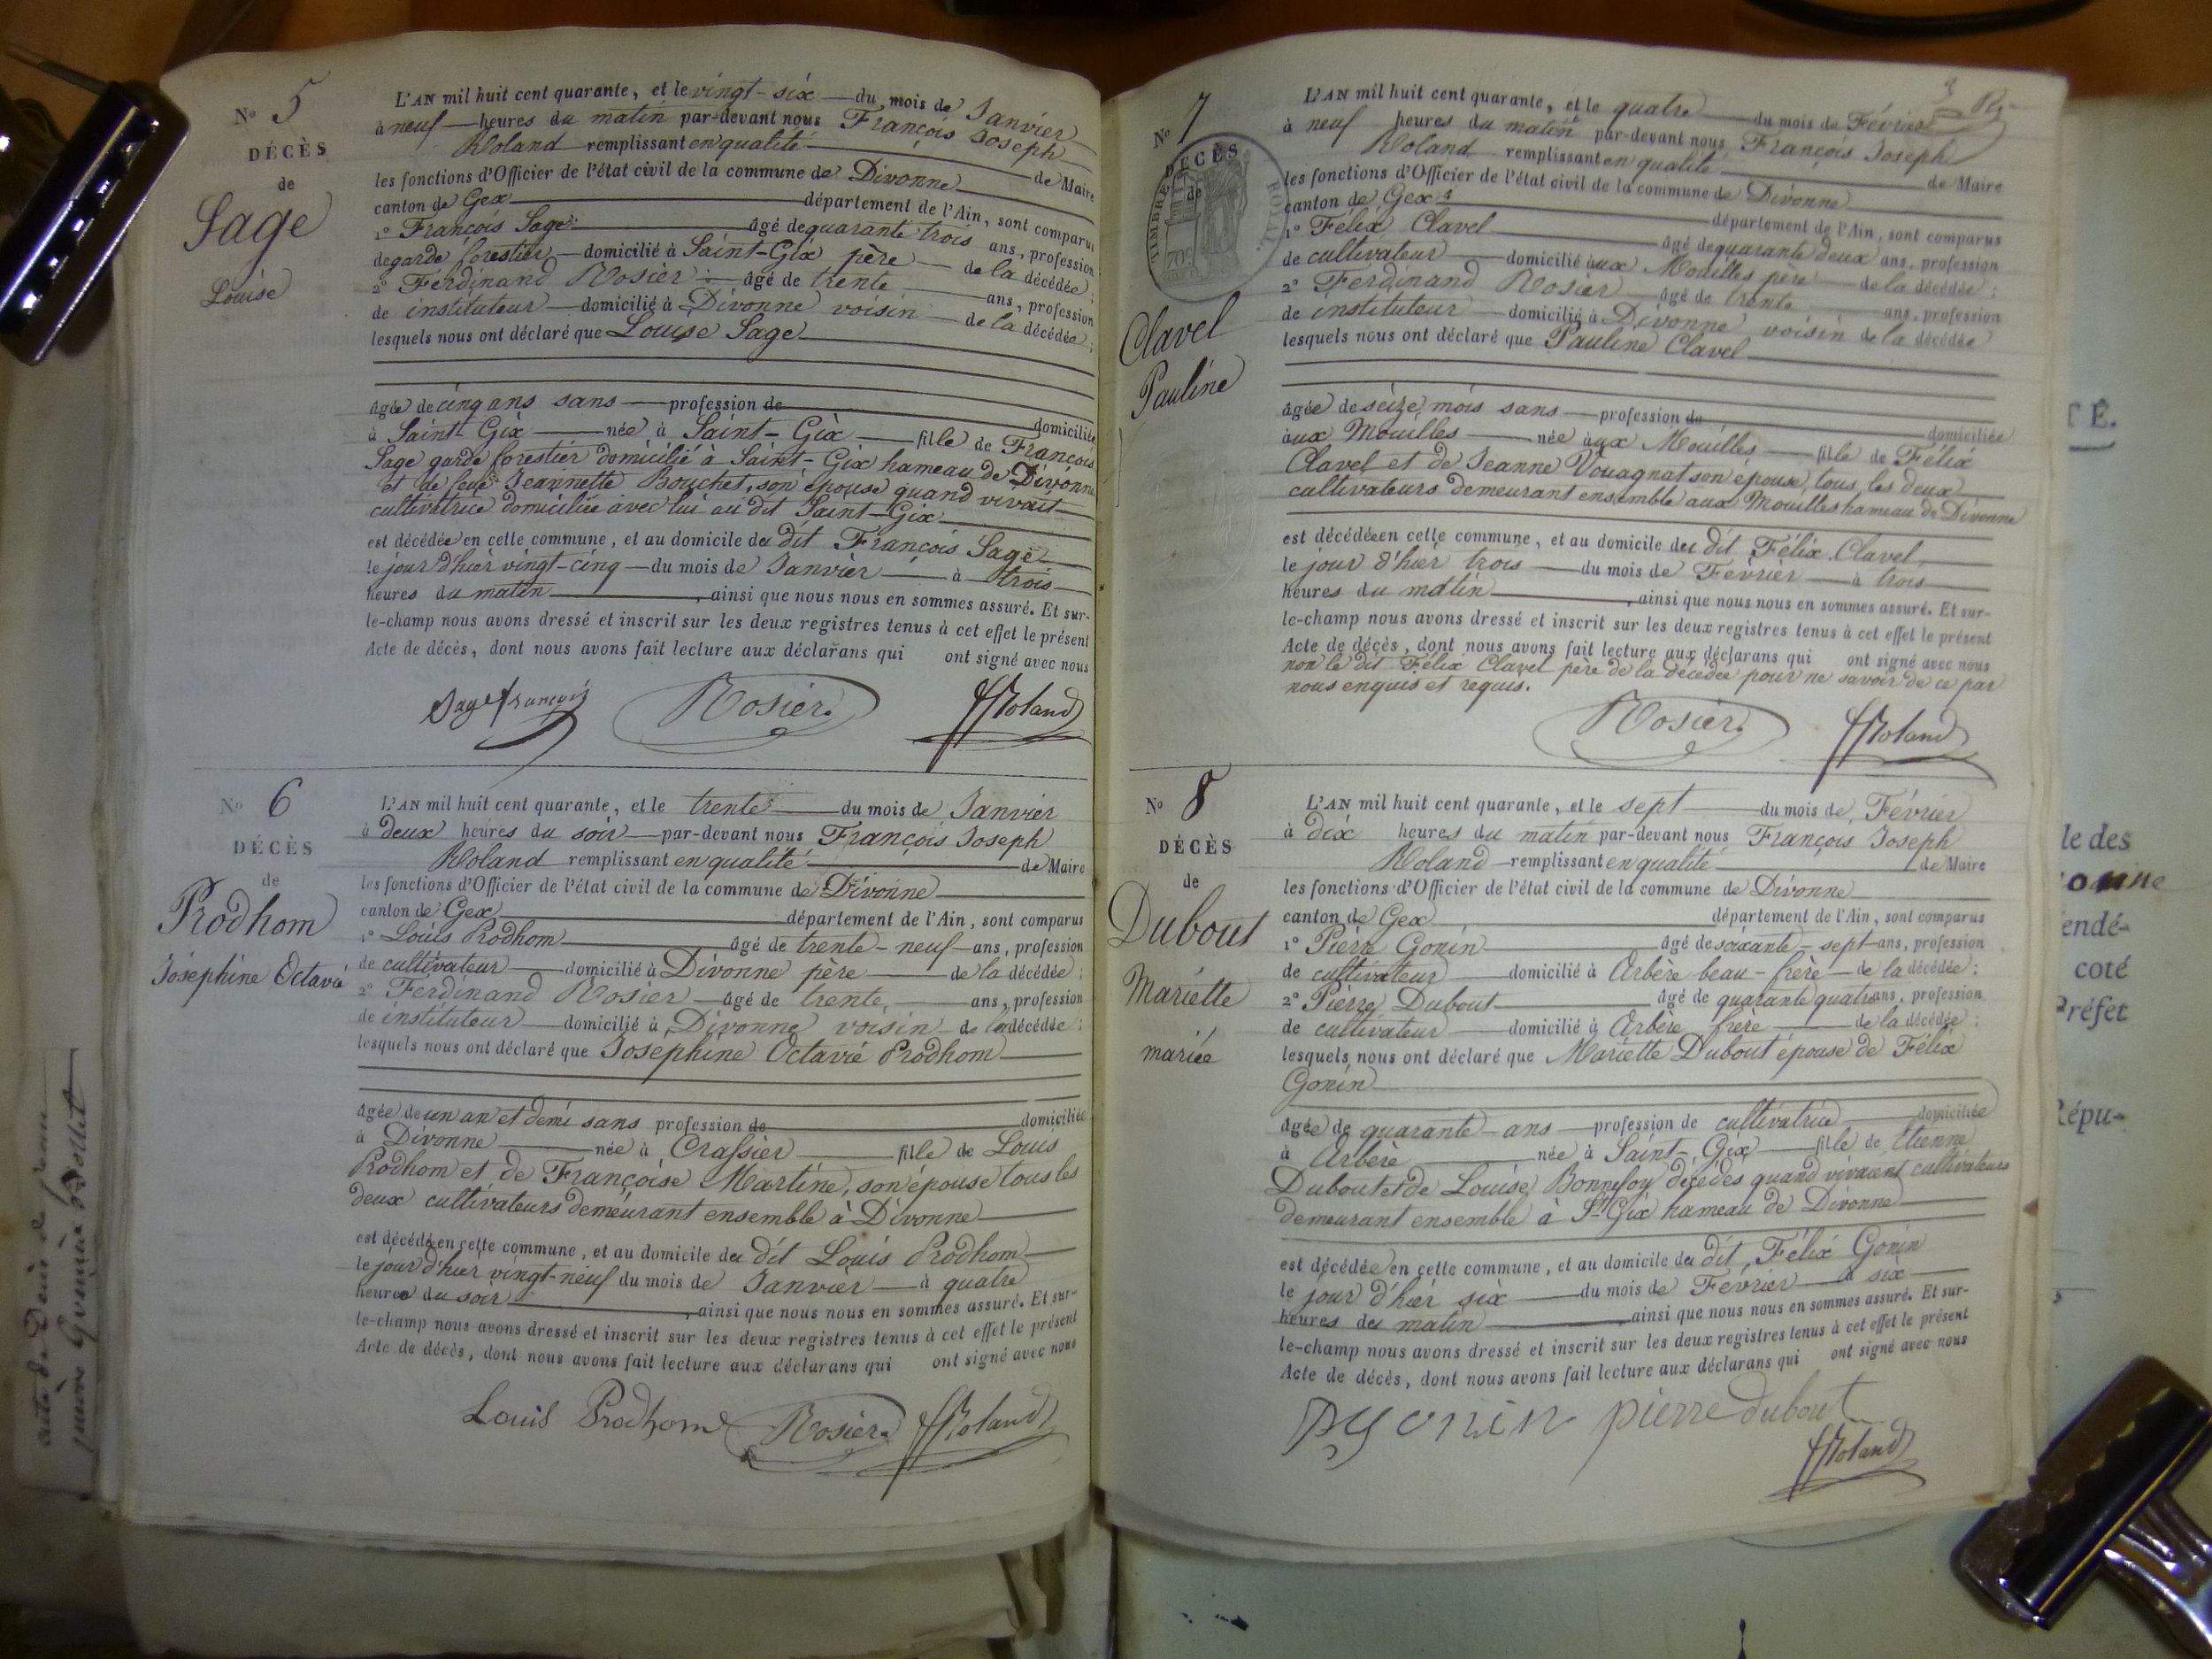 N° 5
DÉCÈS
de
Sage
Louise
L'AN mil huit cent quarante, et le vingt-six du mois de Janvier
à neuf heures du matin par-devant nous François Joseph
Roland remplissant en qualité de Maire
les fonctions d'Officier de l'état civil de la commune de Divonne
canton de Gex département de l'Ain, sont comparus
1° François Sage âgé de quarante trois ans, profession
de garde forestier domicilié à Saint-Gix père de la décédée;
2° Ferdinand Rosier âgé de trente ans, profession
de instituteur domicilié à Divonne voisin de la décédée;
lesquels nous ont déclaré que Louise Sage
âgée de cinq ans sans profession de domiciliée
à Saint-Gix née à Saint-Gix fille de François
Sage garde forestier domicilié à Saint-Gix hameau de Divonne
et de feue Jeannette Bouchet, son épouse quand vivait
cultivatrice domiciliée avec lui au dit Saint-Gix
est décédée en cette commune, et au domicile du dit François Sage
le jour d'hier vingt-cinq du mois de Janvier à trois
heures du matin, ainsi que nous nous en sommes assuré. Et sur-
le-champ nous avons dressé et inscrit sur les deux registres tenus à cet effet le présent
Acte de décès, dont nous avons fait lecture aux déclarans qui ont signé avec nous
Sage françois Rosier. Roland
N° 6
DÉCÈS
de
Prodhom
Josephine Octavie
L'AN mil huit cent quarante, et le trente du mois de Janvier
à deux heures du soir par-devant nous François Joseph
Roland remplissant en qualité de Maire
les fonctions d'Officier de l'état civil de la commune de Divonne
canton de Gex département de l'Ain, sont comparus
1° Louis Prodhom âgé de trente-neuf ans, profession
de cultivateur domicilié à Divonne père de la décédée;
2° Ferdinand Rosier âgé de trente ans, profession
de instituteur domicilié à Divonne voisin de la décédée;
lesquels nous ont déclaré que Josephine Octavie Prodhom
âgée de un an et demi sans profession de domiciliée
à Divonne née à Crassier fille de Louis
Prodhom et de Françoise Martine, son épouse tous les
deux cultivateurs demeurant ensemble à Divonne
est décédée en cette commune, et au domicile du dit Louis Prodhom
le jour d'hier vingt-neuf du mois de Janvier à quatre
heures du soir, ainsi que nous nous en sommes assuré. Et sur-
le-champ nous avons dressé et inscrit sur les deux registres tenus à cet effet le présent
Acte de décès, dont nous avons fait lecture aux déclarans qui ont signé avec nous
Louis Prodhom Rosier. Roland
3
N° 7
DÉCÈS
de
TIMBRE ROYAL
Clavel
Pauline
L'AN mil huit cent quarante, et le quatre du mois de Février
à neuf heures du matin par-devant nous François Joseph
Roland remplissant en qualité de Maire
les fonctions d'Officier de l'état civil de la commune de Divonne
canton de Gex département de l'Ain, sont comparus
1° Félix Clavel âgé de quarante deux ans, profession
de cultivateur domicilié aux Mouilles père de la décédée;
2° Ferdinand Rosier âgé de trente ans, profession
de instituteur domicilié à Divonne voisin de la décédée
lesquels nous ont déclaré que Pauline Clavel
âgée de seize mois sans profession de domiciliée
aux Mouilles née aux Mouilles fille de Félix
Clavel et de Jeanne Vouagnat son épouse tous les deux
cultivateurs demeurant ensemble aux Mouilles hameau de Divonne
est décédée en cette commune, et au domicile du dit Félix Clavel
le jour d'hier trois du mois de Février à trois
heures du matin, ainsi que nous nous en sommes assuré. Et sur-
le-champ nous avons dressé et inscrit sur les deux registres tenus à cet effet le présent
Acte de décès, dont nous avons fait lecture aux déclarans qui ont signé avec nous
non le dit Félix Clavel père de la décédée pour ne savoir de ce par
nous enquis et requis.
Rosier. Roland
N° 8
DÉCÈS
de
Dubout
Mariette
mariée
L'AN mil huit cent quarante, et le sept du mois de Février
à dix heures du matin par-devant nous François Joseph
Roland remplissant en qualité de Maire
les fonctions d'Officier de l'état civil de la commune de Divonne
canton de Gex département de l'Ain, sont comparus
1° Pierre Gonin âgé de soixante-sept ans, profession
de cultivateur domicilié à Arbère beau-frère de la décédée;
2° Pierre Dubout âgé de quarante quatre ans, profession
de cultivateur domicilié à Arbère frère de la décédée;
lesquels nous ont déclaré que Mariette Dubout épouse de Félix
Gonin
âgée de quarante ans profession de cultivatrice domiciliée
à Arbère née à Saint-Gix fille de Etienne
Dubout et de Louise Bonnefoy décédés quand vivaient cultivateurs
demeurant ensemble à St Gix hameau de Divonne
est décédée en cette commune, et au domicile du dit Félix Gonin
le jour d'hier six du mois de Février à six
heures du matin, ainsi que nous nous en sommes assuré. Et sur-
le-champ nous avons dressé et inscrit sur les deux registres tenus à cet effet le présent
Acte de décès, dont nous avons fait lecture aux déclarans qui ont signé avec nous
gonin pierre dubout
Roland
TÉ.
le des
endé-
coté
Préfet
Répu-